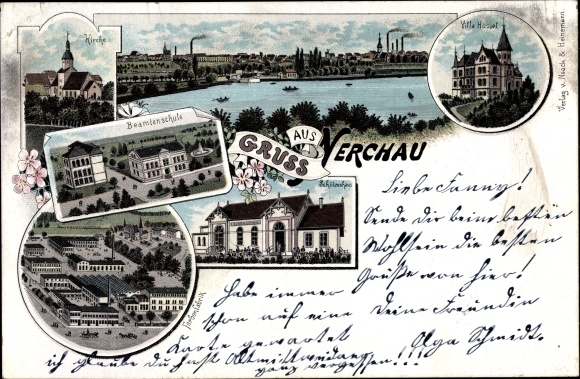 Kirche
Villa Hessel
Verlag v. Naack & Heinemann.
Beamtenschule
GRUSS AUS NERCHAU
Schützenhaus
Farbenfabrik
Liebe Fanny!
Sende Dir beim besten
Wohlsein die besten
Grüße von hier!
Deine Freundin
Olga Schmidt.
Habe immer
schon auf eine
Karte gewartet
ich glaube du hast
ganz vergessen!!!